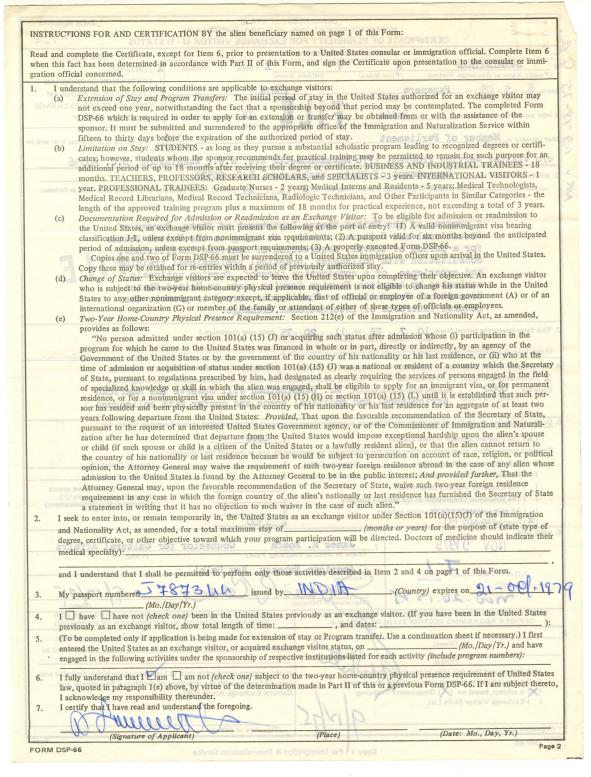 INSTRUCTIONS FOR AND CERTIFICATION BY the alien beneficiary named on page 1 of this Form:
Read and complete the Certificate, except for Item 6, prior to presentation to a United States consular or immigration official. Complete Item 6
when this fact has been determined in accordance with Part II of this Form, and sign the Certificate upon presentation to the consular or immi-
gration official concerned.
1. I understand that the following conditions are applicable to exchange visitors:
(a) Extension of Stay and Program Transfers: The initial period of stay in the United States authorized for an exchange visitor may
not exceed one year, notwithstanding the fact that a sponsorship beyond that period may be contemplated. The completed Form
DSP-66 which is required in order to apply for an extension or transfer may be obtained from or with the assistance of the
sponsor. It must be submitted and surrendered to the appropriate office of the Immigration and Naturalization Service within
fifteen to thirty days before the expiration of the authorized period of stay.
(b) Limitation on Stay: STUDENTS - as long as they pursue a substantial scholastic program leading to recognized degrees or certifi-
cates; however, students whom the sponsor recommends for practical training may be permitted to remain for such purpose for an
additional period of up to 18 months after receiving their degree or certificate. BUSINESS AND INDUSTRIAL TRAINEES - 18
months. TEACHERS, PROFESSORS, RESEARCH SCHOLARS, and SPECIALISTS - 3 years. INTERNATIONAL VISITORS - 1
year. PROFESSIONAL TRAINEES: Graduate Nurses - 2 years; Medical Interns and Residents - 5 years; Medical Technologists,
Medical Record Librarians, Medical Record Technicians, Radiologic Technicians, and Other Participants in Similar Categories - the
length of the approved training program plus a maximum of 18 months for practical experience, not exceeding a total of 3 years.
(c) Documentation Required for Admission or Readmission as an Exchange Visitor: To be eligible for admission or readmission to
the United States, an exchange visitor must present the following at the port of entry: (1) A valid nonimmigrant visa bearing
classification J-1, unless exempt from nonimmigrant visa requirements; (2) A passport valid for six months beyond the anticipated
period of admission, unless exempt from passport requirements; (3) A properly executed Form DSP-66.
Copies one and two of Form DSP-66 must be surrendered to a United States immigration officer upon arrival in the United States.
Copy three may be retained for re-entries within a period of previously authorized stay.
(d) Change of Status: Exchange visitors are expected to leave the United States upon completing their objective. An exchange visitor
who is subject to the two-year home-country physical presence requirement is not eligible to change his status while in the United
States to any other nonimmigrant category except, if applicable, that of official or employee of a foreign government (A) or of an
international organization (G) or member of the family or attendant of either of these types of officials or employees.
(e) Two-Year Home-Country Physical Presence Requirement: Section 212(e) of the Immigration and Nationality Act, as amended,
provides as follows:
"No person admitted under section 101(a) (15) (J) or acquiring such status after admission whose (i) participation in the
program for which he came to the United States was financed in whole or in part, directly or indirectly, by an agency of the
Government of the United States or by the government of the country of his nationality or his last residence, or (ii) who at the
time of admission or acquisition of status under section 101(a) (15) (J) was a national or resident of a country which the Secretary
of State, pursuant to regulations prescribed by him, had designated as clearly requiring the services of persons engaged in the field
of specialized knowledge or skill in which the alien was engaged, shall be eligible to apply for an immigrant visa, or for permanent
residence, or for a nonimmigrant visa under section 101(a) (15) (H) or section 101(a) (15) (L) until it is established that such per-
son has resided and been physically present in the country of his nationality or his last residence for an aggregate of at least two
years following departure from the United States: Provided, That upon the favorable recommendation of the Secretary of State,
pursuant to the request of an interested United States Government agency, or of the Commissioner of Immigration and Naturali-
zation after he has determined that departure from the United States would impose exceptional hardship upon the alien's spouse
or child (if such spouse or child is a citizen of the United States or a lawfully resident alien), or that the alien cannot return to
the country of his nationality or last residence because he would be subject to persecution on account of race, religion, or political
opinion, the Attorney General may waive the requirement of such two-year foreign residence abroad in the case of any alien whose
admission to the United States is found by the Attorney General to be in the public interest; And provided further, That the
Attorney General may, upon the favorable recommendation of the Secretary of State, waive such two-year foreign residence
requirement in any case in which the foreign country of the alien's nationality or last residence has furnished the Secretary of State
a statement in writing that it has no objection to such waiver in the case of such alien."
2. I seek to enter into, or remain temporarily in, the United States as an exchange visitor under Section 101(a)(15)(J) of the Immigration
and Nationality Act, as amended, for a total maximum stay of (months or years) for the purpose of (state type of
degree, certificate, or other objective toward which your program participation will be directed. Doctors of medicine should indicate their
medical specialty):
and I understand that I shall be permitted to perform only those activities described in Item 2 and 4 on page 1 of this Form.
3. My passport numbered J787344 issued by INDIA (Country) expires on 21-oct.1979
(Mo./Day/Yr.)
4. I have have not (check one) been in the United States previously as an exchange visitor. (If you have been in the United States
previously as an exchange visitor, show total length of time: , and dates: ):
5. (To be completed only if application is being made for extension of stay or Program transfer. Use a continuation sheet if necessary.) I first
entered the United States as an exchange visitor, or acquired exchange visitor status, on (Mo./Day/Yr.) and have
engaged in the following activities under the sponsorship of respective institutions listed for each activity (include program numbers):
6. I fully understand that I am am not (check one) subject to the two-year home-country physical presence requirement of United States
law, quoted in paragraph 1(e) above, by virtue of the determination made in Part II of this or a previous Form DSP-66. If I am subject thereto,
I acknowledge my responsibility thereunder.
7. I certify that I have read and understand the foregoing.
(Signature of Applicant) (Place) (Date: Mo., Day, Yr.)
FORM DSP-66 Page 2